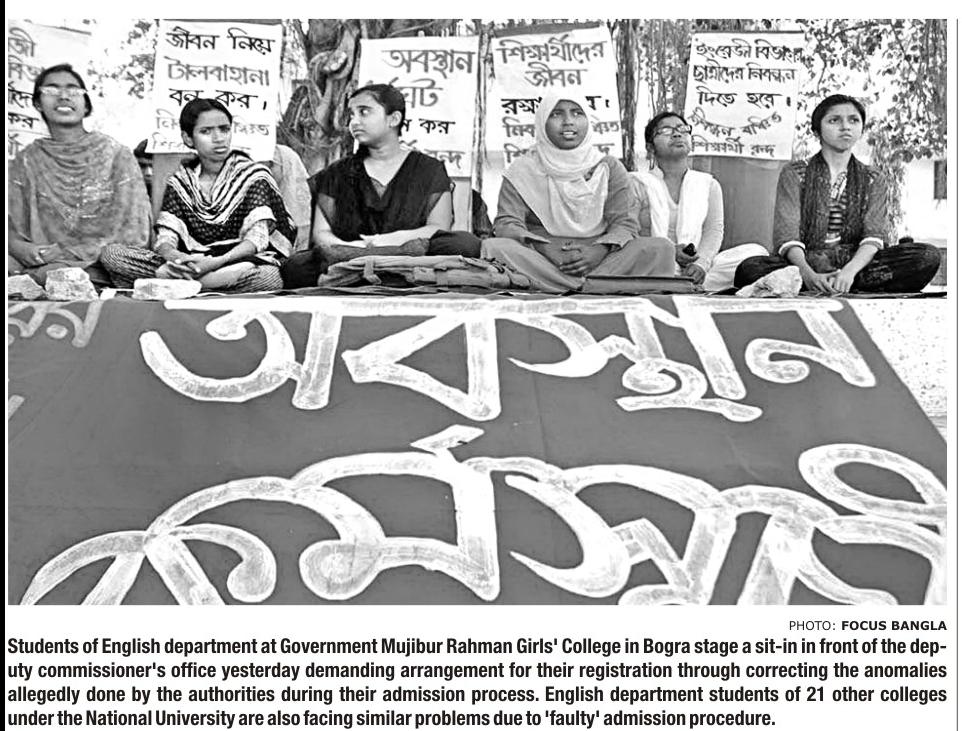 জীবন নিয়ে
টালবাহানা
বন্ধ কর।
অবস্থান
কর
শিক্ষার্থীদের
জীবন
ইংরেজী বিভাগের
ছাত্রীদের নিবন্ধন
দিতে হবে।
বঞ্চিত
শিক্ষার্থী বৃন্দ
অবস্থান
PHOTO: FOCUS BANGLA
Students of English department at Government Mujibur Rahman Girls' College in Bogra stage a sit-in in front of the dep-
uty commissioner's office yesterday demanding arrangement for their registration through correcting the anomalies
allegedly done by the authorities during their admission process. English department students of 21 other colleges
under the National University are also facing similar problems due to 'faulty' admission procedure.